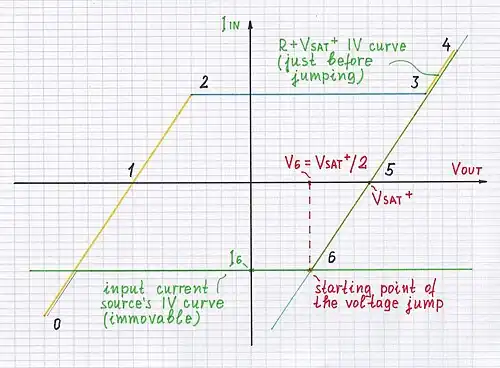 IIN
R+VSAT+ IV curve
(just before
jumping)
4
2
3
1
V6 = VSAT+/2
5
VOUT
VSAT+
I6
6
input current
source's IV curve
(immovable)
starting point of
the voltage jump
0